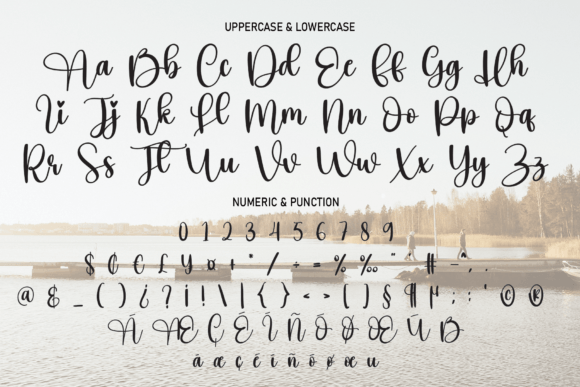 UPPERCASE & LOWERCASE
Aa Bb Cc Dd Ee Ff Gg Hh
Ii Jj Kk Ll Mm Nn Oo Pp Qq
Rr Ss Tt Uu Vv Ww Xx Yy Zz
NUMERIC & PUNCTION
0 1 2 3 4 5 6 7 8 9
$ ¢ € £ ¥ ¤ + * / ÷ = % ‰ " # - , .
@ & _ ( ) ¿ ? ¡ ! \ | { } < > [ ] § ¶ µ : ; ' © ®
Á Æ Ç É Í Ñ Ó Ø Œ Ú
á æ ç é í ñ ó ø œ u